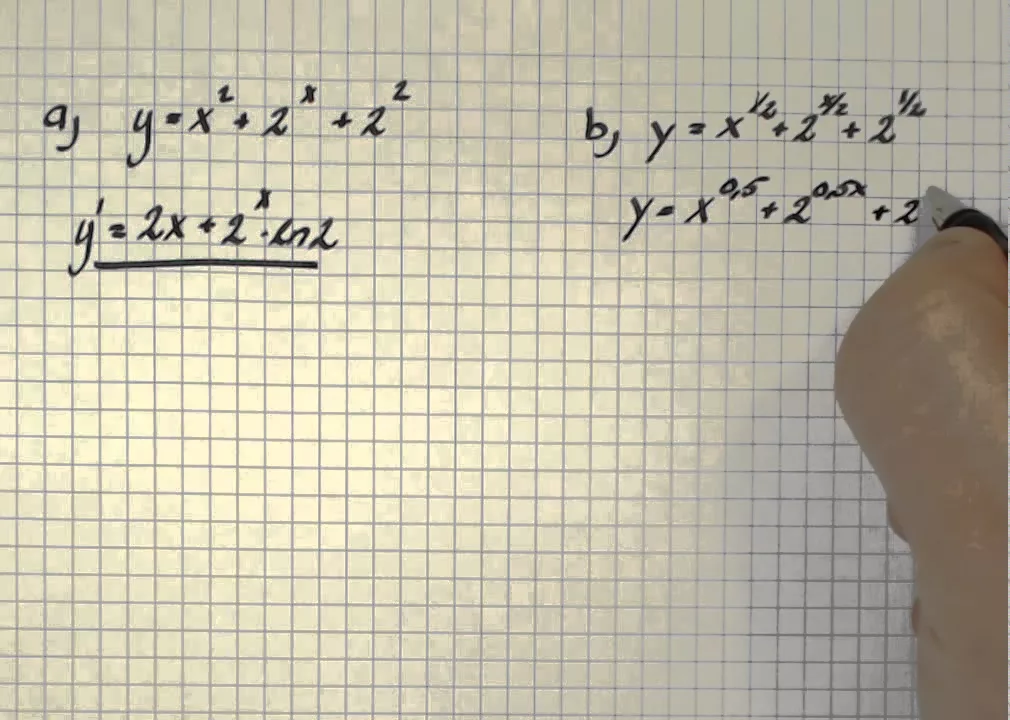 a, y = x² + 2ˣ + 2²
y' = 2x + 2ˣ · ln2
b, y = x^1/2 + 2^x/2 + 2^1/2
y = x^0,5 + 2^0,5x + 2